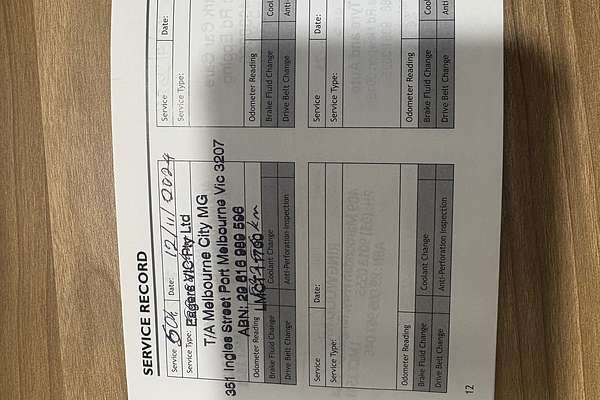 SERVICE RECORD
Service 60K Date: 12/11/2024
Service Type:
Eagers VIC Pty Ltd
T/A Melbourne City MG
351 Ingles Street Port Melbourne Vic 3207
ABN: 29 816 989 596
LMCT 11760
Odometer Reading km
Brake Fluid Change Coolant Change
Drive Belt Change Anti-Perforation Inspection
Service Date:
Service Type:
Odometer Reading
Brake Fluid Change Cool
Drive Belt Change Anti-
Service Date:
Service Type:
Odometer Reading
Brake Fluid Change Coolant Change
Drive Belt Change Anti-Perforation Inspection
Service Date:
Service Type:
Odometer Reading
Brake Fluid Change Cool
Drive Belt Change Anti-
12